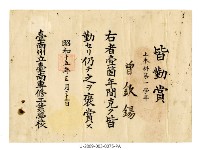 皆勤賞
土木科第一學年
曾欽錫
右者壹箇年間克ク皆
勤セリ仍テ之ヲ褒賞ス
昭和十五年三月
臺南州立臺南專修工業學校